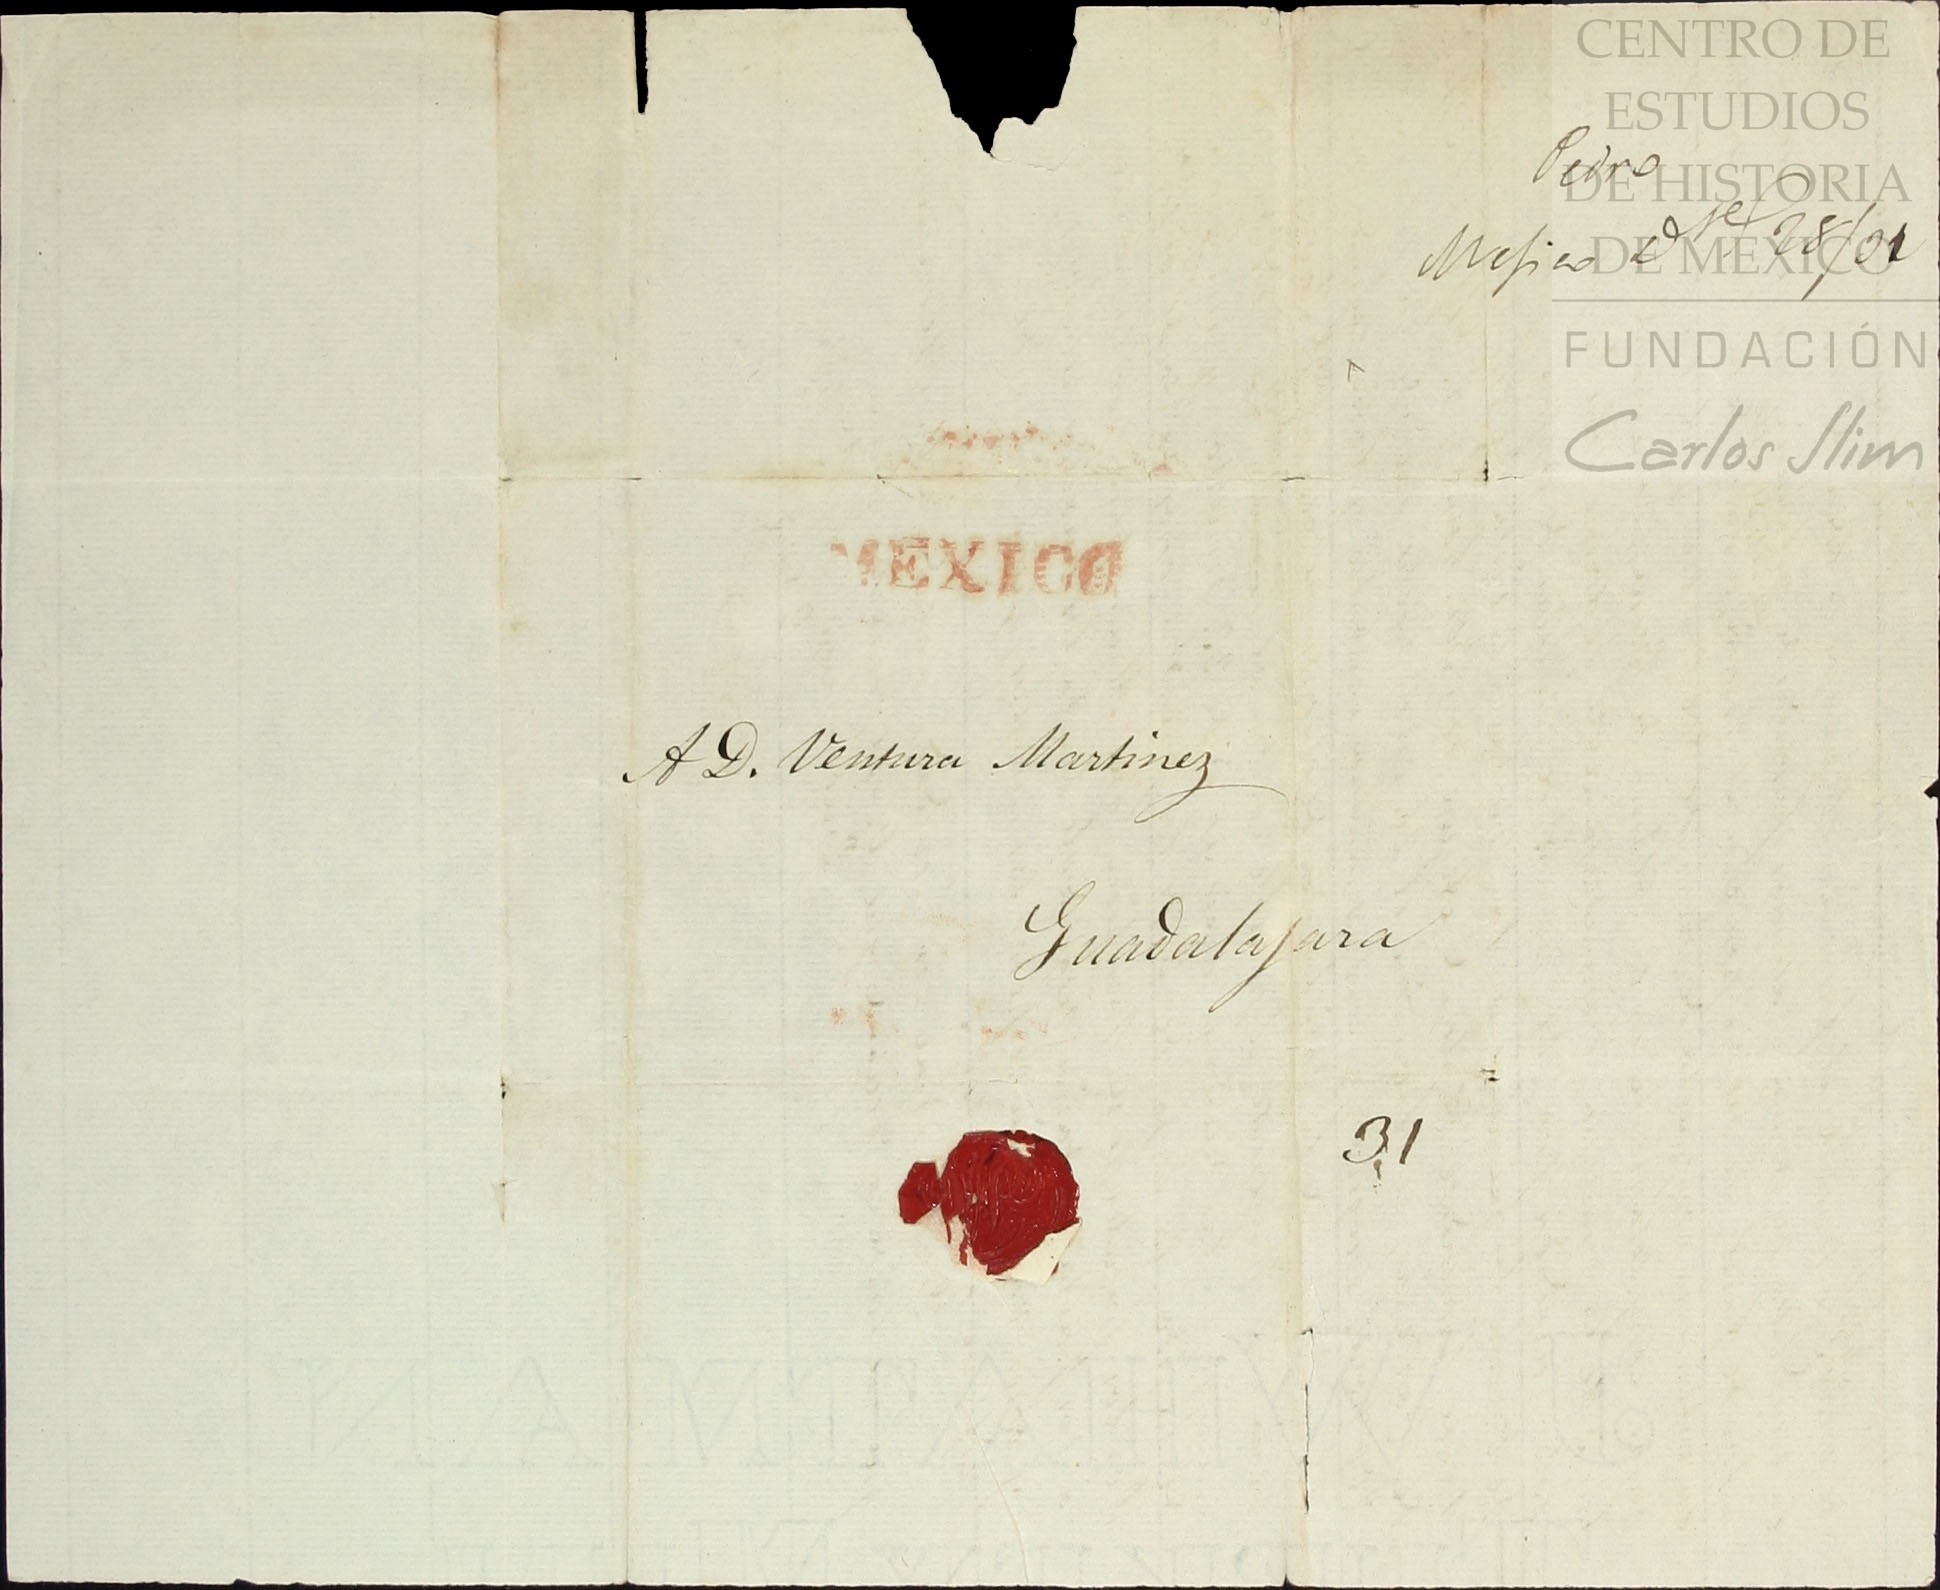 CENTRO DE
ESTUDIOS
DE HISTORIA
DE MÉXICO
FUNDACIÓN
Carlos Slim
Pedro
Mexico 28/01
MEXICO
A D. Ventura Martinez
Guadalajara
31